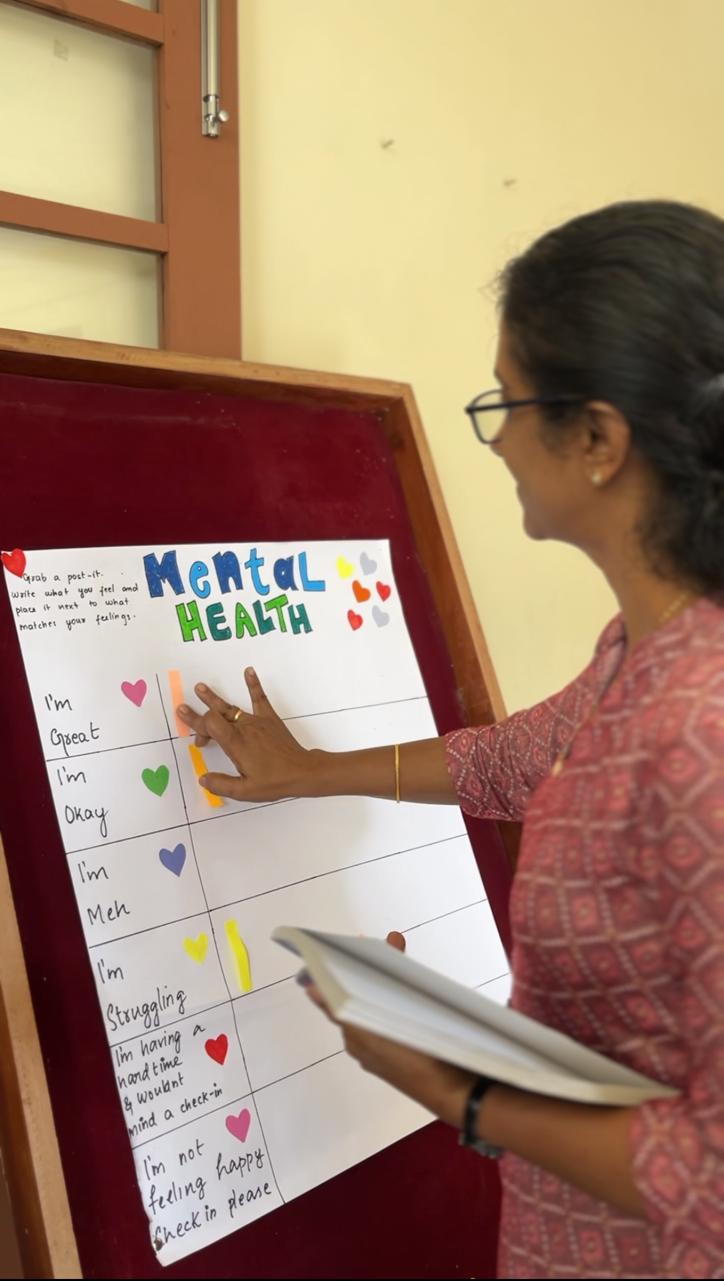 Grab a post-it.
write what you feel and
place it next to what
matches your feelings.
Mental
HEALTH
I'm
Great
I'm
Okay
I'm
Meh
I'm
Struggling
I'm having a
hard time
& wouldnt
mind a check-in
I'm not
feeling happy
Check in please